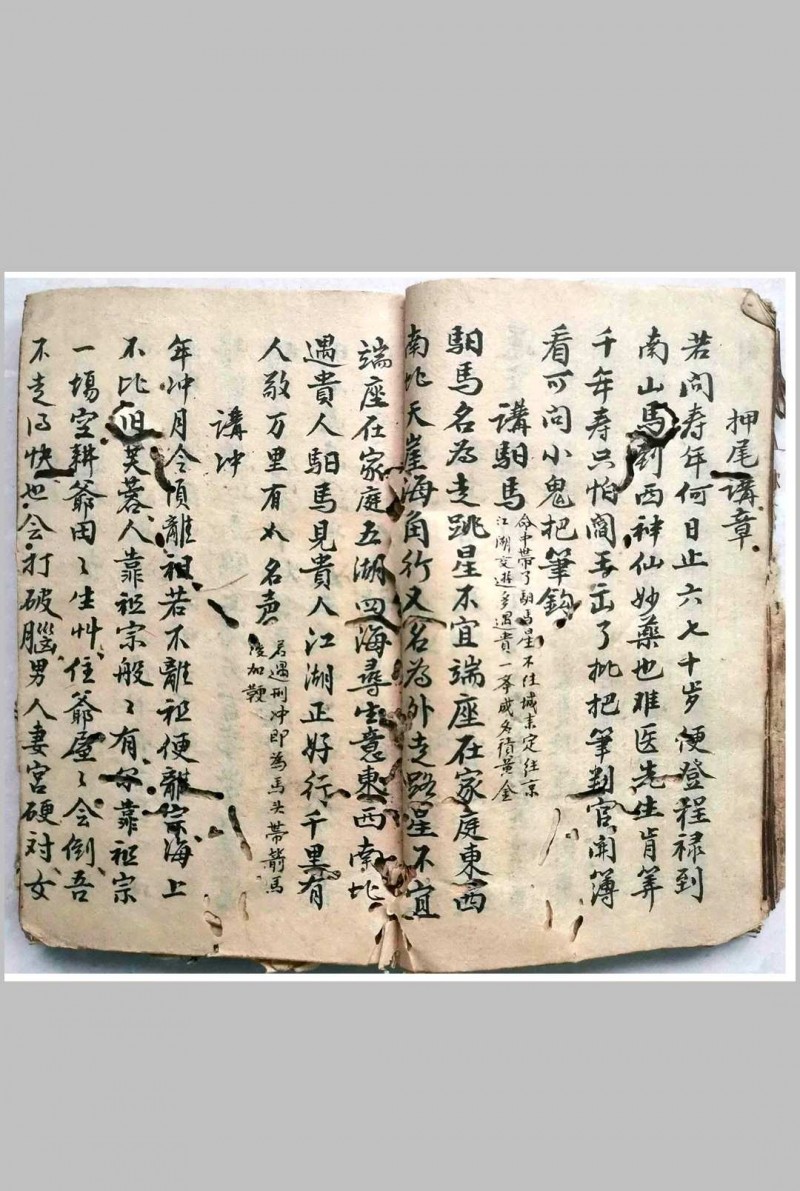 押尾講章
若问寿年何日止六七十岁便登程禄到
南山馬到西神仙妙藥也难医先生肯筭
千年寿只怕閻王出了批把筆判官開簿
看可问小鬼把筆鈎
講馹馬
命中帶了馹馬星不住城末定往京
江湖交遊多遇貴一季成名積黄金
馹馬名為走跳星不宜端座在家庭東西
南北天崖海角行又名為外走路星不宜
端座在家庭五湖四海尋生意東西南北
遇貴人馹馬見貴人江湖正好行千里有
人敬万里有名声
若遇刑冲即為馬头帶箭馬
後加鞭
講冲
年冲月令順離祖若不離祖便離宗海上
不比旧芙蓉人靠祖宗般〻有尔靠祖宗
一場空耕爺田〻生艸住爺屋〻会倒吾
不走得快也会打破腦男人妻宮硬对女